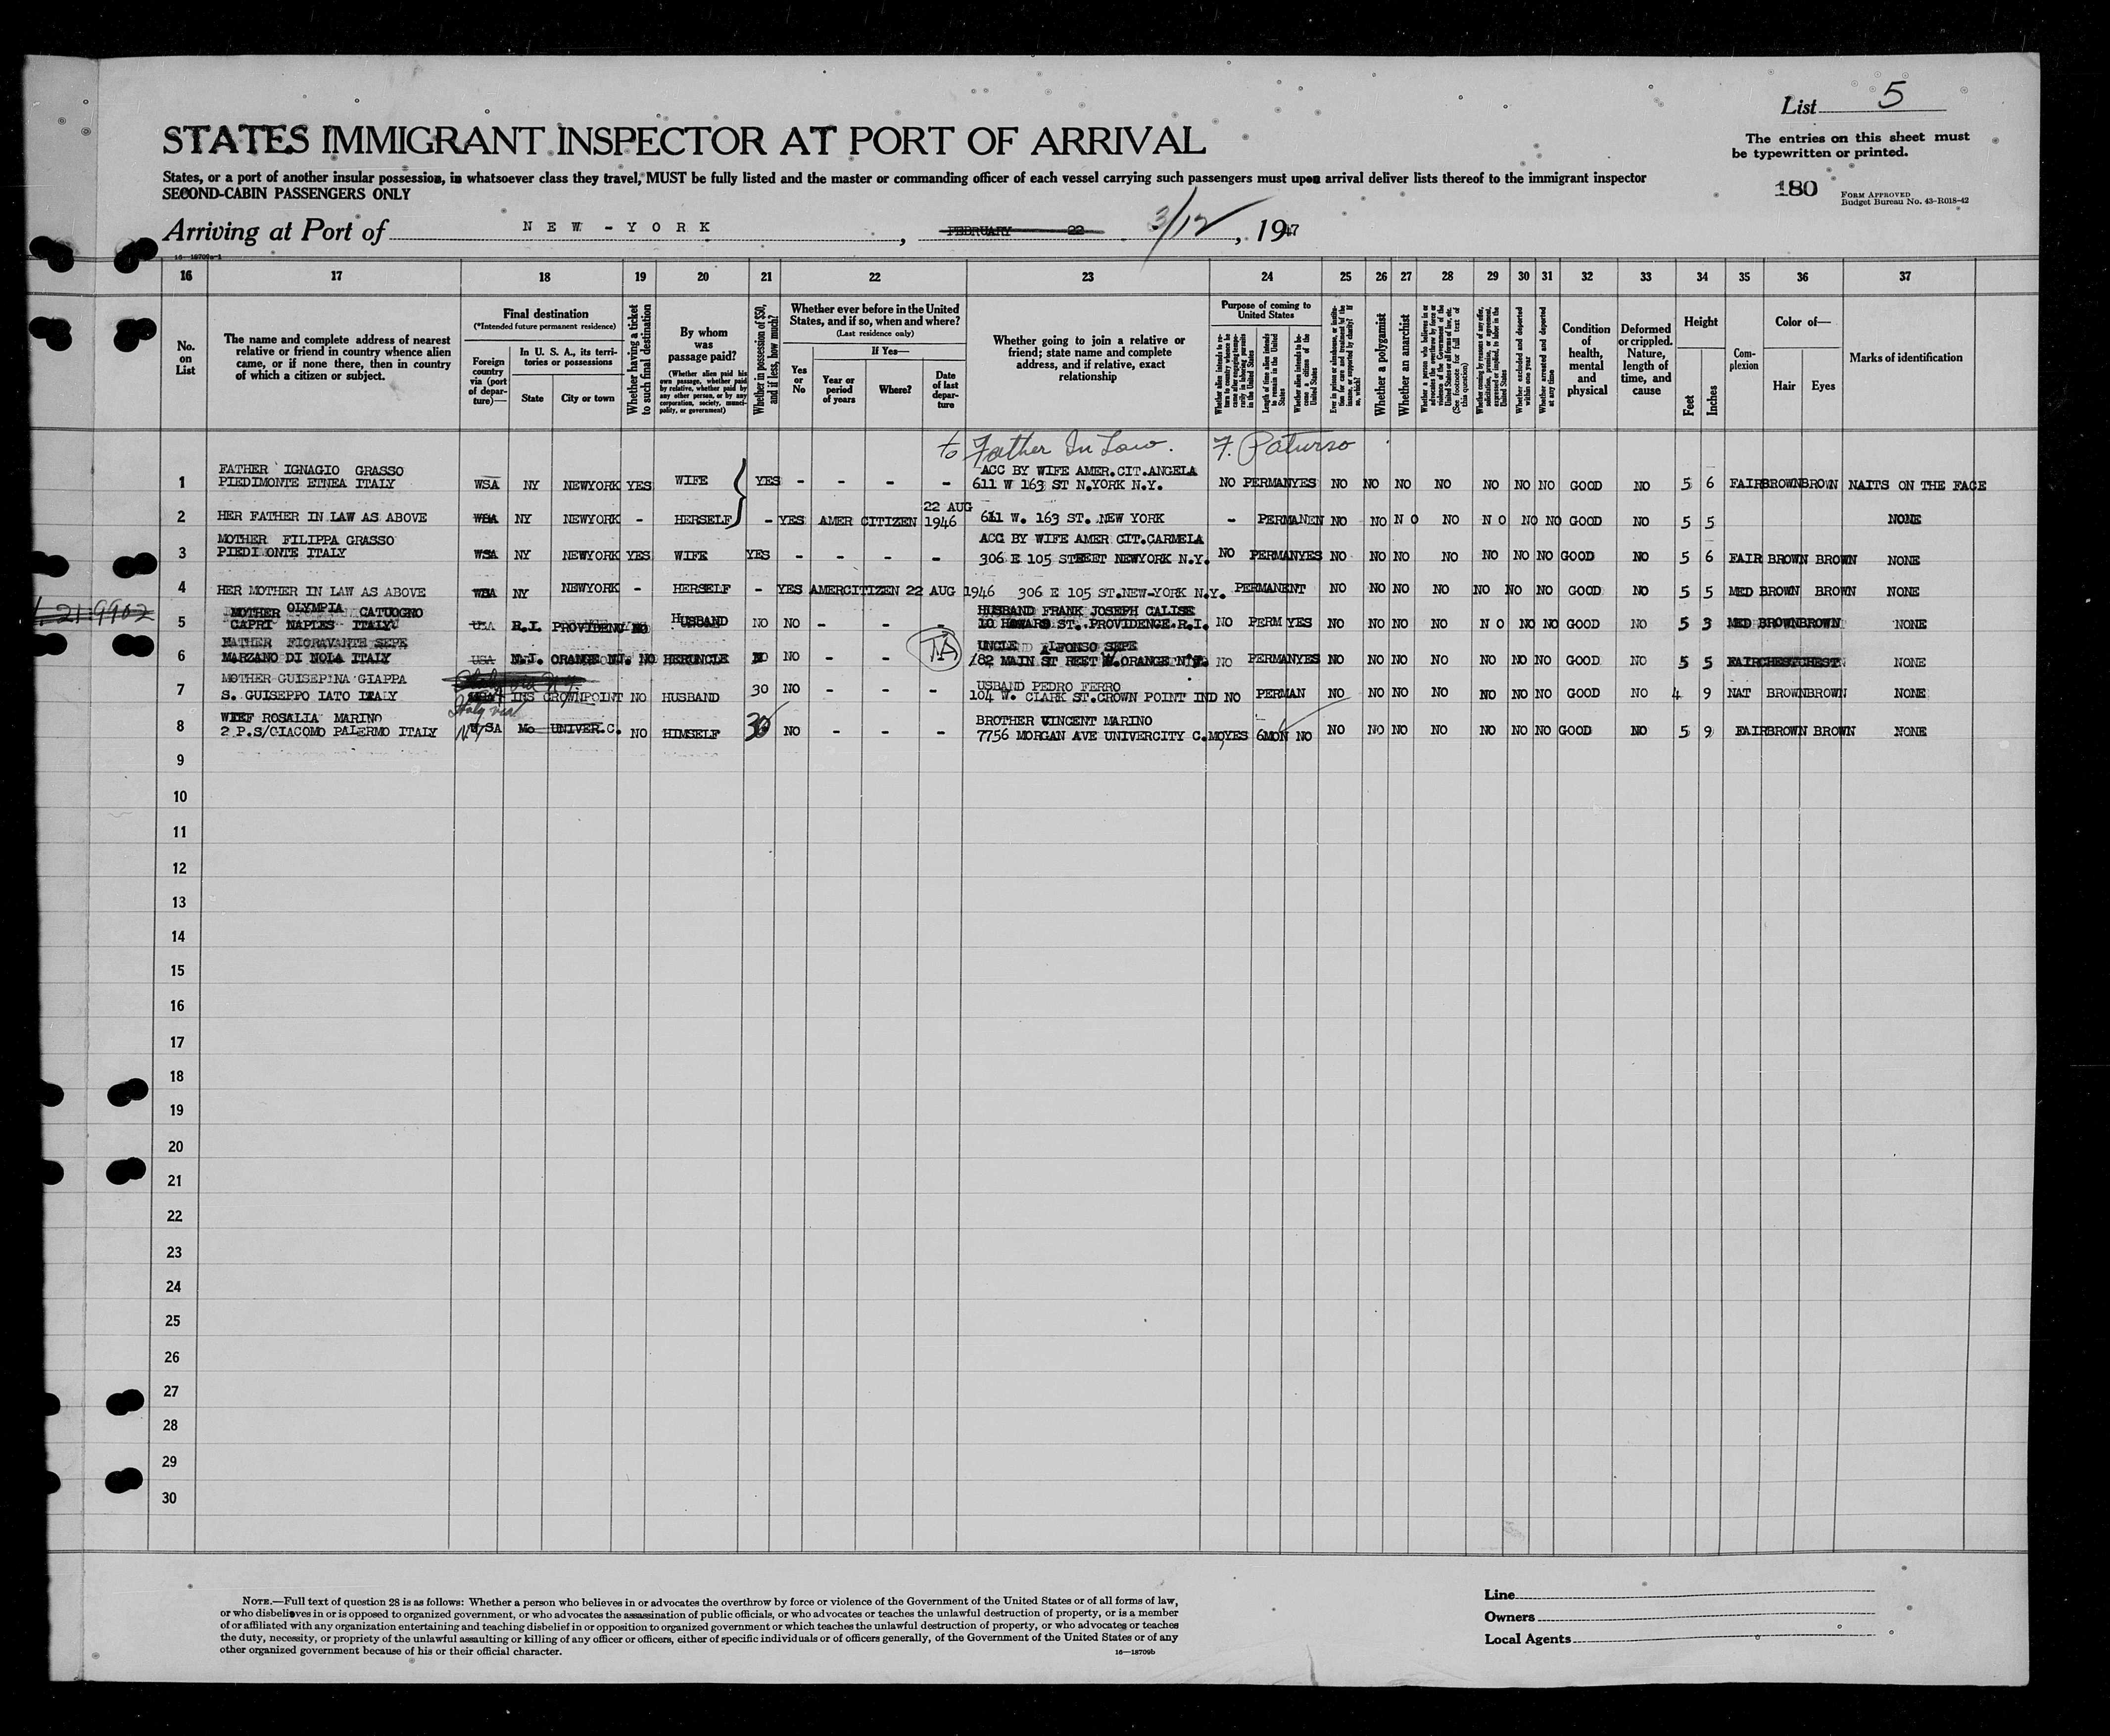 List 5
The entries on this sheet must
be typewritten or printed.
180
FORM APPROVED
Budget Bureau No. 43-R018-42
STATES IMMIGRANT INSPECTOR AT PORT OF ARRIVAL
States, or a port of another insular possession, in whatsoever class they travel, MUST be fully listed and the master or commanding officer of each vessel carrying such passengers must upon arrival deliver lists thereof to the immigrant inspector
SECOND-CABIN PASSENGERS ONLY
Arriving at Port of NEW-YORK, FEBRUARY 22 3/12, 1947
16 17 18 19 20 21 22 23 24 25 26 27 28 29 30 31 32 33 34 35 36 37
No. on List
The name and complete address of nearest
relative or friend in country whence alien
came, or if none there, then in country
of which a citizen or subject.
Final destination
(*Intended future permanent residence)
Foreign country via (port of departure)—
In U. S. A., its territories or possessions
State
City or town
Whether having a ticket to such final destination
By whom was passage paid?
(Whether alien paid his own passage, whether paid by relative, whether paid by any other person, or by any corporation, society, municipality, or government)
Whether in possession of $50, and if less, how much?
Whether ever before in the United
States, and if so, when and where?
(Last residence only)
Yes or No
If Yes—
Year or period of years
Where?
Date of last departure
Whether going to join a relative or
friend; state name and complete
address, and if relative, exact
relationship
Purpose of coming to United States
Whether a polygamist
Whether an anarchist
Condition of health, mental and physical
Deformed or crippled. Nature, length of time, and cause
Height
Feet
Inches
Complexion
Color of—
Hair
Eyes
Marks of identification
to Father In Law. F. Paturso
FATHER IGNAGIO GRASSO ACC BY WIFE AMER.CIT.ANGELA
1 PIEDIMONTE ETNEA ITALY WSA NY NEWYORK YES WIFE YES - - - - 611 W 163 ST N.YORK N.Y. NO PERMANYES NO NO NO NO NO NO NO GOOD NO 5 6 FAIRBROWNBROWN NAITS ON THE FACE
22 AUG
2 HER FATHER IN LAW AS ABOVE NY NEWYORK - HERSELF - YES AMER CITIZEN 1946 611 W. 163 ST. NEW YORK - PERMANEN NO NO NO NO NO NO NO GOOD NO 5 5 NONE
MOTHER FILIPPA GRASSO ACC BY WIFE AMER CIT.CARMELA
3 PIEDI ONTE ITALY WSA NY NEWYORK YES WIFE YES - - - - 306 E 105 STREET NEWYORK N.Y. NO PERMANYES NO NO NO NO NO NO NO GOOD NO 5 6 FAIR BROWN BROWN NONE
4 HER MOTHER IN LAW AS ABOVE NY NEWYORK - HERSELF - YES AMERCITIZEN 22 AUG 1946 306 E 105 ST.NEW-YORK N.Y. PERMANENT NO NO NO NO NO NO NO GOOD NO 5 5 MED BROWN BROWN NONE
MOTHER OLYMPIA CATUOGNO HUSBAND FRANK JOSEPH CALISE
5 CAPRI NAPLES ITALY USA R.I. NO HUSBAND NO NO - - - 10 ST. PROVIDENCE.R.I. NO PERM YES NO NO NO NO NO NO NO GOOD NO 5 3 MED BROWNBROWN NONE
FATHER FIORAVANTE SEPE UNCLE ALFONSO SEPE
6 MARZANO DI NOLA ITALY USA N.J. ORANGE NJ. NO HERUNCLE NO NO - - TA 182 MAIN ST REET W.ORANGE N.J. NO PERMANYES NO NO NO NO NO NO NO GOOD NO 5 5 FAIRCHESTCHEST NONE
MOTHER GUISEPINA GIAPPA USBAND PEDRO FERRO
7 S. GUISEPPO IATO ITALY INS CROWNPOINT NO HUSBAND 30 NO - - - 104 W. CLARK ST.CROWN POINT IND NO PERMAN NO NO NO NO NO NO NO GOOD NO 4 9 NAT BROWNBROWN NONE
Italy via NY
WIEF ROSALIA MARINO BROTHER VINCENT MARINO
8 2 P.S/GIACOMO PALERMO ITALY Mo UNIVER.C. NO HIMSELF 30 NO - - - 7756 MORGAN AVE UNIVERCITY C.MO YES 6MON NO NO NO NO NO NO NO NO GOOD NO 5 9 FAIRBROWN BROWN NONE
9
10
11
12
13
14
15
16
17
18
19
20
21
22
23
24
25
26
27
28
29
30
NOTE.—Full text of question 28 is as follows: Whether a person who believes in or advocates the overthrow by force or violence of the Government of the United States or of all forms of law,
or who disbelieves in or is opposed to organized government, or who advocates the assassination of public officials, or who advocates or teaches the unlawful destruction of property, or is a member
of or affiliated with any organization entertaining and teaching disbelief in or opposition to organized government or which teaches the unlawful destruction of property, or who advocates or teaches
the duty, necessity, or propriety of the unlawful assaulting or killing of any officer or officers, either of specific individuals or of officers generally, of the Government of the United States or of any
other organized government because of his or their official character.
16—18709b
Line
Owners
Local Agents